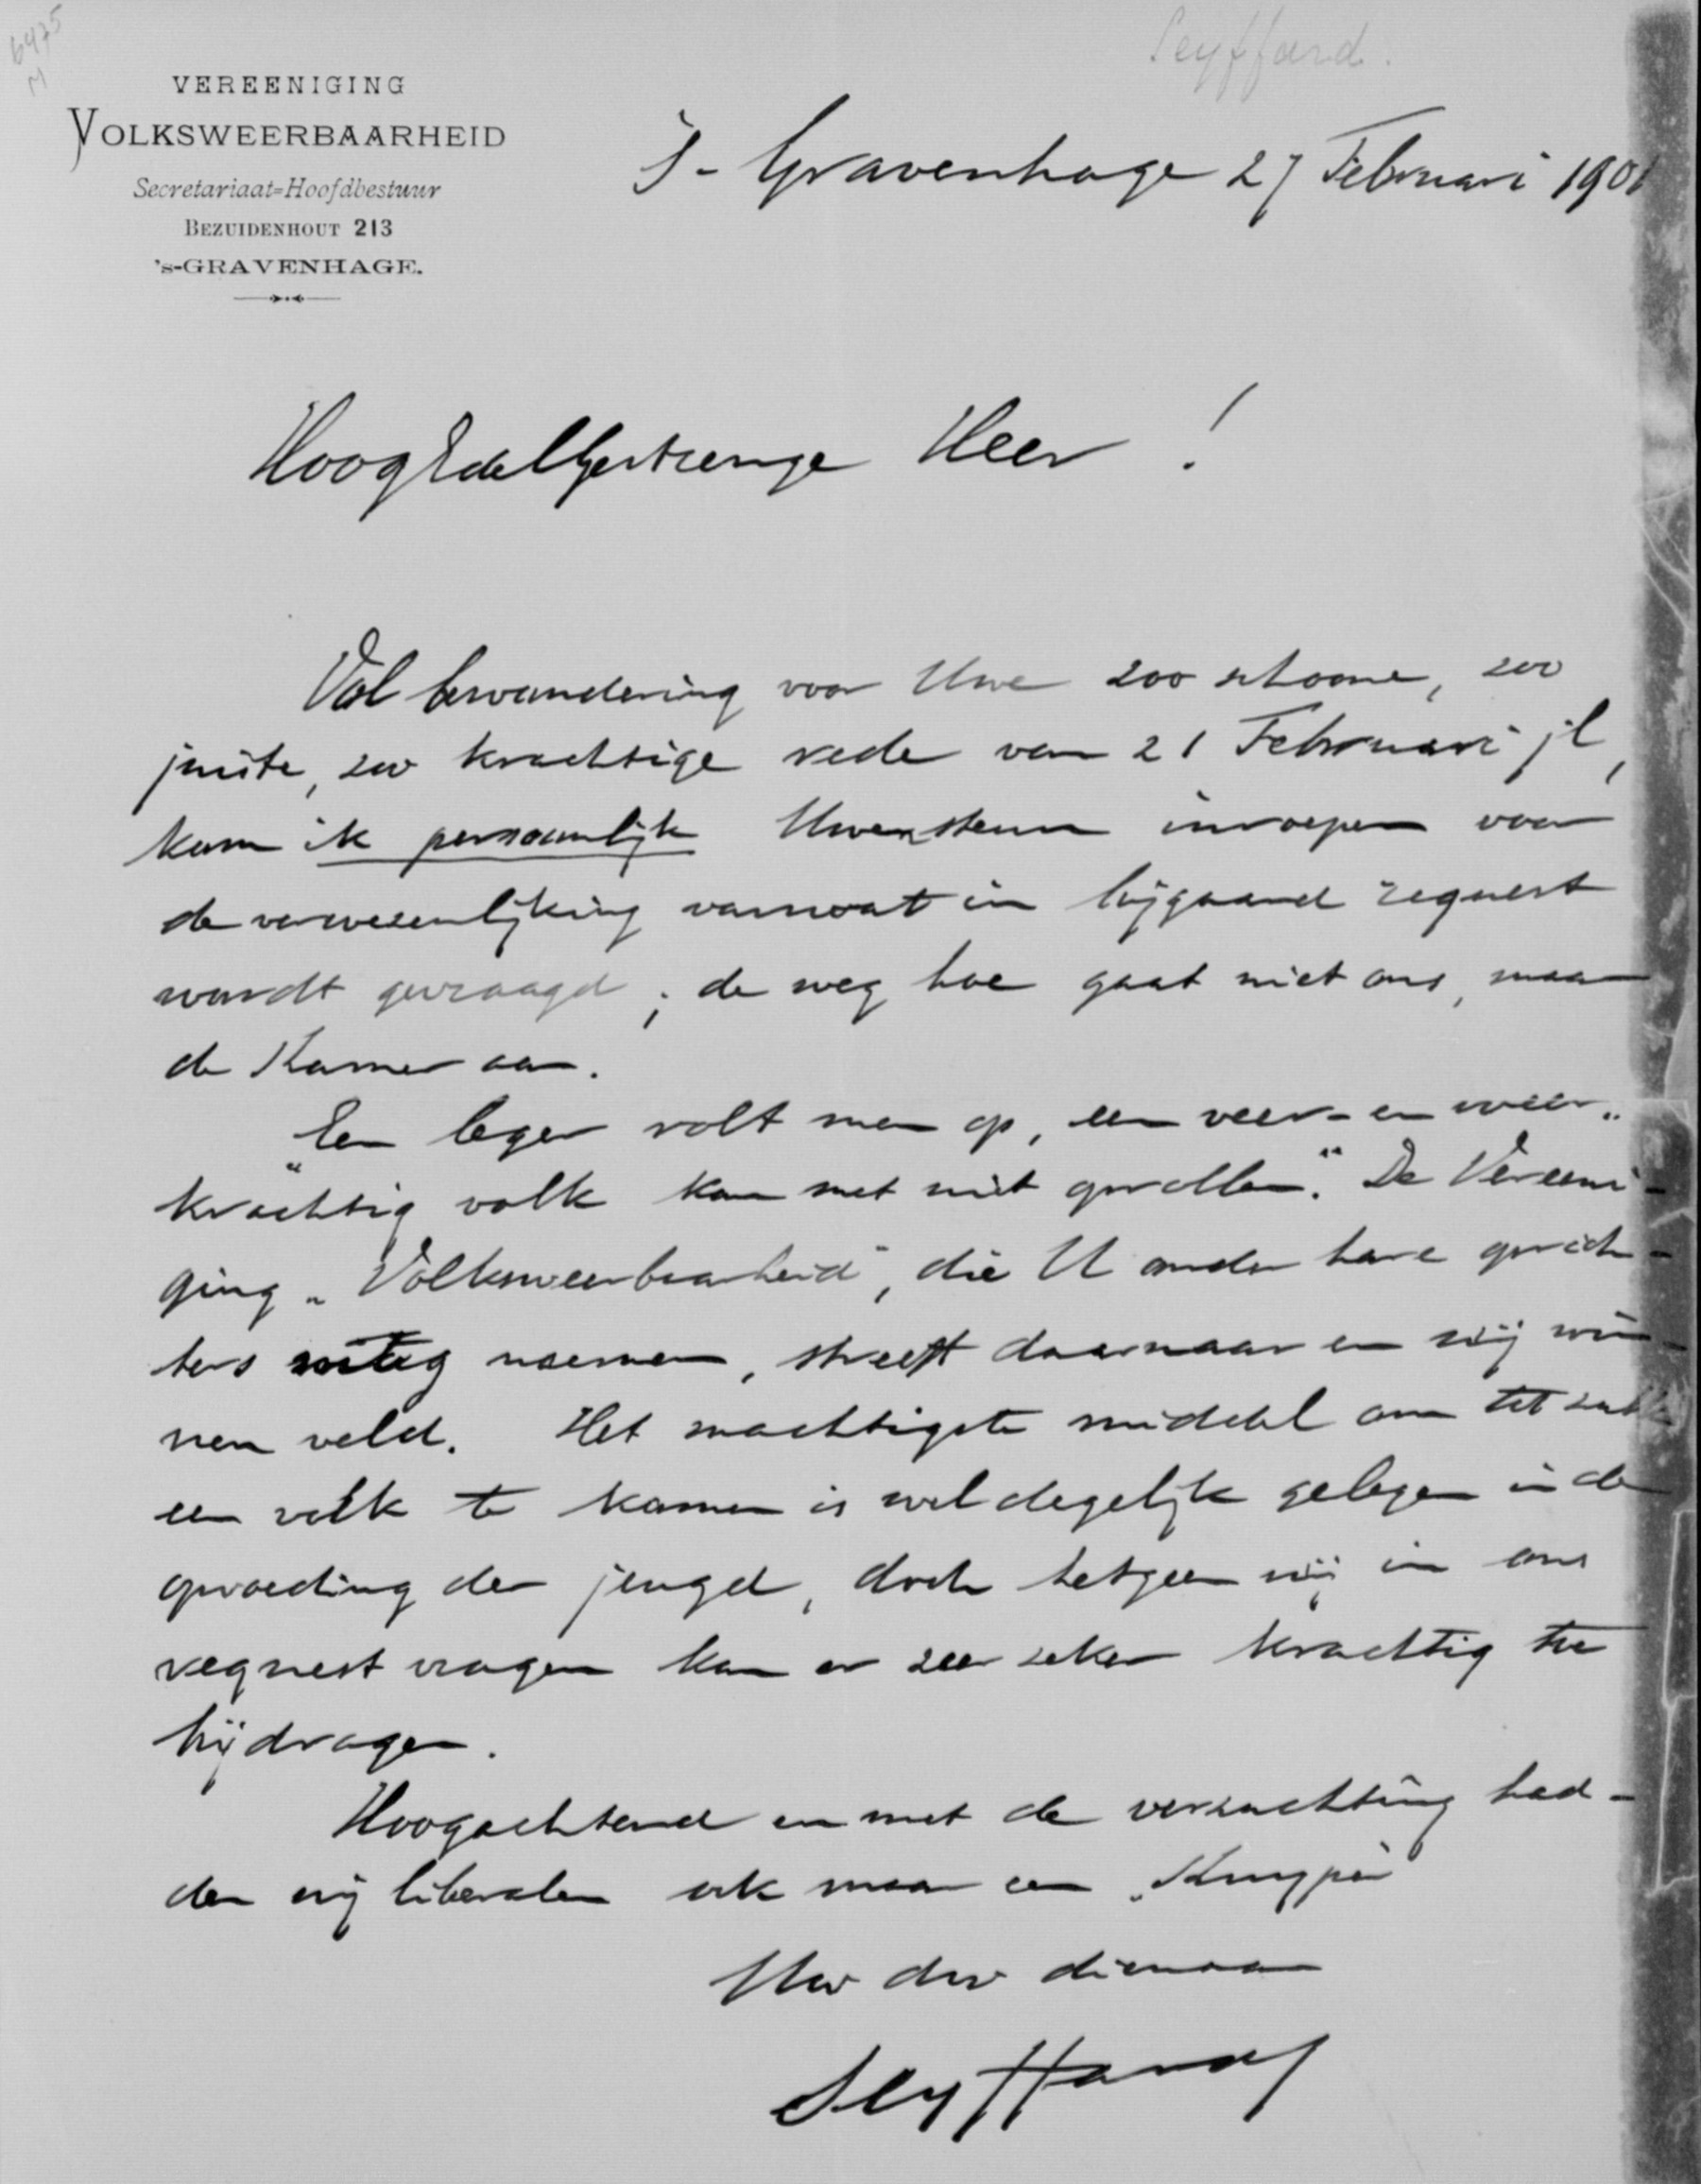 6475
M
Seyffard.
VEREENIGING
VOLKSWEERBAARHEID
Secretariaat=Hoofdbestuur
BEZUIDENHOUT 213
's-GRAVENHAGE.
's-Gravenhage 27 Februari 1901
HoogEdelGestrenge Heer !
Vol bewondering voor Uwe zoo schoone, zoo
juiste, zoo krachtige rede van 21 Februari jl,
kom ik persoonlijk Uwen steun inroepen voor
de verwezenlijking van wat in bijgaand request
wordt gevraagd; de weg hoe gaat niet ons, maar
de Kamer aan.
"Een leger rolt men op, een veer- en weer-
krachtig volk kan men niet oprollen." De Vereeni-
ging "Volksweerbaarheid", die U onder hare oprich-
ters mag noemen, streeft daarnaar en wij win-
nen veld. Het machtigste middel om tot zulk
een volk te komen is wel degelijk gelegen in de
opvoeding der jeugd, doch hetgeen wij in ons
request vragen kan er zeer zeker krachtig toe
bijdragen.
Hoogachtend en met de verzuchting had-
den wij liberalen ook maar een "Kuyper"
Uw dw dienaar
Seyffardt